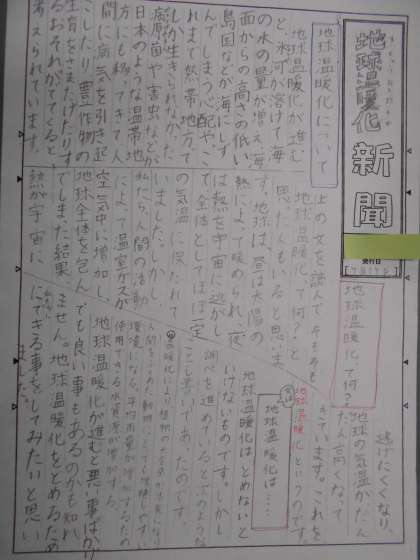 地球温暖化新聞
ちきゅうおんだんか
発行日
地球温暖化について
地球温暖化が進む
と、氷河が溶けて海
の水の量が増え、海
面からの高さの低い
島国などが海にしず
んでしまう心配や、こ
れまで熱帯地方で
しか生きられなかった
病原菌や害虫などが
日本のような温帯地
方にも移ってきて人
間に病気を引き起
こしたり、農作物の
生育をさまたげたりす
るおそれがでてくると
考えられています。
地球温暖化って何?
上の文を読んで、そもそも
地球温暖化って何?と
思った人もいると思いま
す。地球は、昼は太陽の
熱によって暖められ、夜
は熱を宇宙に逃がし
て全体としてほぼ一定
の気温に保たれて
いました。しかし、
私たち人間の活動
によって温室ガスが
空気中に増加し、
地球全体を包ん
でしまった結果
熱が宇宙に
逃げにくくなり、
地球の気温がだん
だん高くなって
きています。これを
地球温暖化というのです。
実は
地球温暖化は……
地球温暖化はとめないと
いけないものです。しかし
調べを進めているとこのような
ことも書いてあったのです。
温暖化により植物の
人間をふくめ、動物にとっても
環境になる。平均雨量が増加するため
使用できる水資源が増加する。
地球温暖化が進むと悪い事ばかり
でも良い事もあるのかも知れ
ません。地球温暖化をとめるため
にできる事をしてみたいと思い
ました。